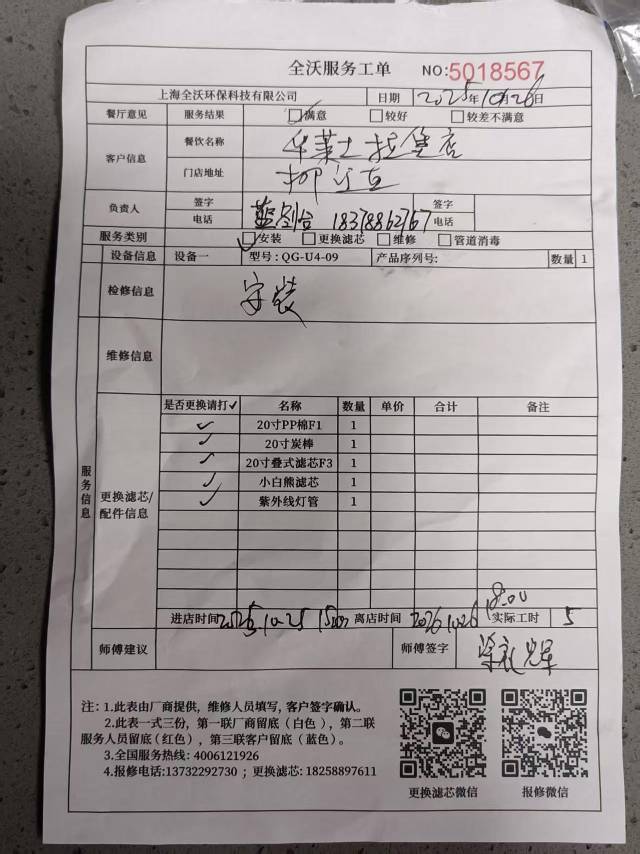 全沃服务工单 NO:5018567
上海全沃环保科技有限公司 日期 2025年10月26日
餐厅意见 服务结果 ☑满意 □较好 □较差不满意
客户信息 餐饮名称 华莱士拉堡店
门店地址 柳江
负责人 签字 签字
电话 18378862767 电话
服务类别 ☑安装 □更换滤芯 □维修 □管道消毒
设备信息 设备一 型号:QG-U4-09 产品序列号: 数量 1
检修信息 安装
维修信息
服务信息
更换滤芯/配件信息
是否更换请打✓ 名称 数量 单价 合计 备注
✓ 20寸PP棉F1 1
✓ 20寸炭棒 1
✓ 20寸叠式滤芯F3 1
✓ 小白熊滤芯 1
✓ 紫外线灯管 1
进店时间 2025.10.25 离店时间 18:00 实际工时 5
师傅建议 师傅签字
注:1.此表由厂商提供,维修人员填写,客户签字确认。
2.此表一式三份,第一联厂商留底(白色),第二联
服务人员留底(红色),第三联客户留底(蓝色)。
3.全国服务热线:4006121926
4.报修电话:13732292730 ;更换滤芯:18258897611
更换滤芯微信 报修微信